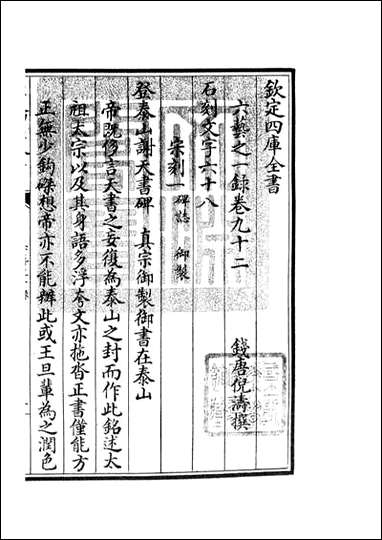 欽定四庫全書
六藝之一録卷九十二
錢唐倪濤撰
石刻文字六十八
宋刻一 碑誌 御製
登泰山謝天書碑 真宗御製御書在泰山
帝既侈言天書之妄復為泰山之封而作此銘述太
祖太宗以及其身語多浮夸文亦拖沓正書僅能方
正無少鈎磔想帝亦不能辦此或王旦輩為之潤色